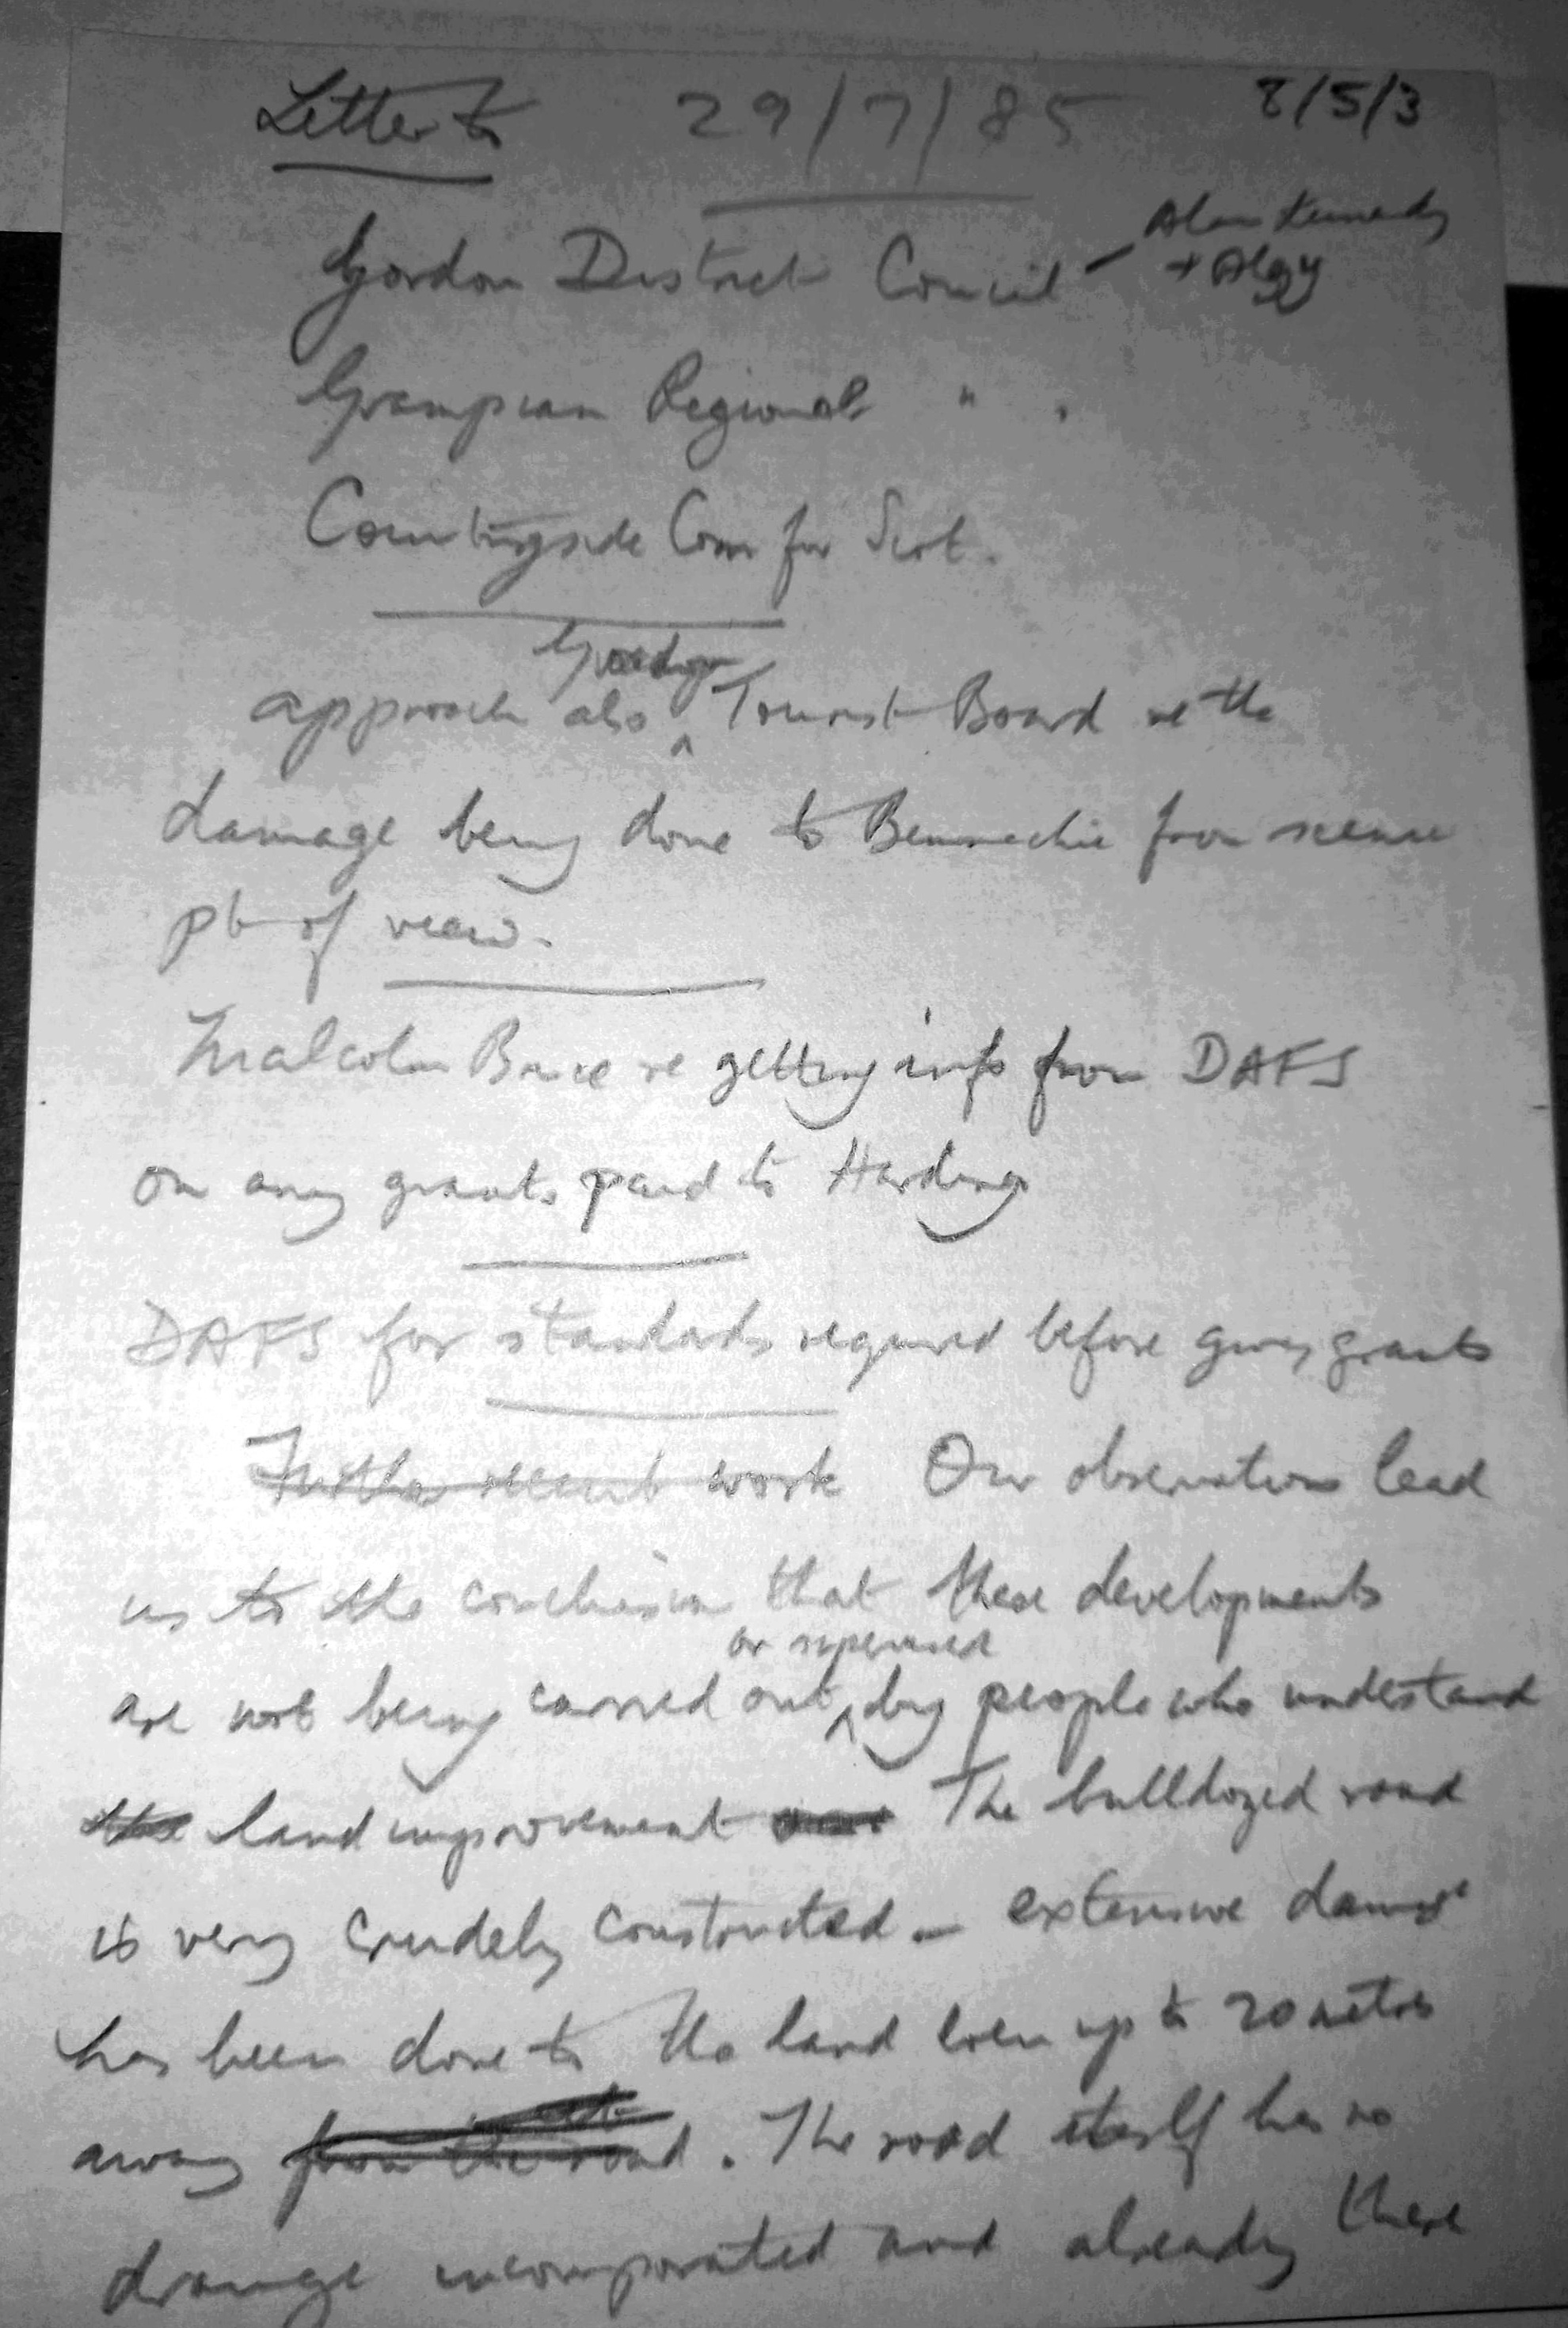 Letter to 29/7/85 8/5/3
Gordon District Council - Alan Kennedy
+ Algy
Grampian Regional " "
Countryside Com for Scot.
Gordon
approach also ^ Tourist Board re the
damage being done to Bennachie from scenic
pt of view.
Malcolm Bruce re getting info from DAFS
on any grants paid to Harding
DAFS for standards required before giving grants
Further recent work Our observations lead
us to the conclusion that these developments
or supervised
are not being carried out ^ by people who understand
land improvement The bulldozed road
is very crudely constructed - extensive damage
has been done to the land even up to 20 metres
away from the road. The road itself has no
drainage incorporated and already there